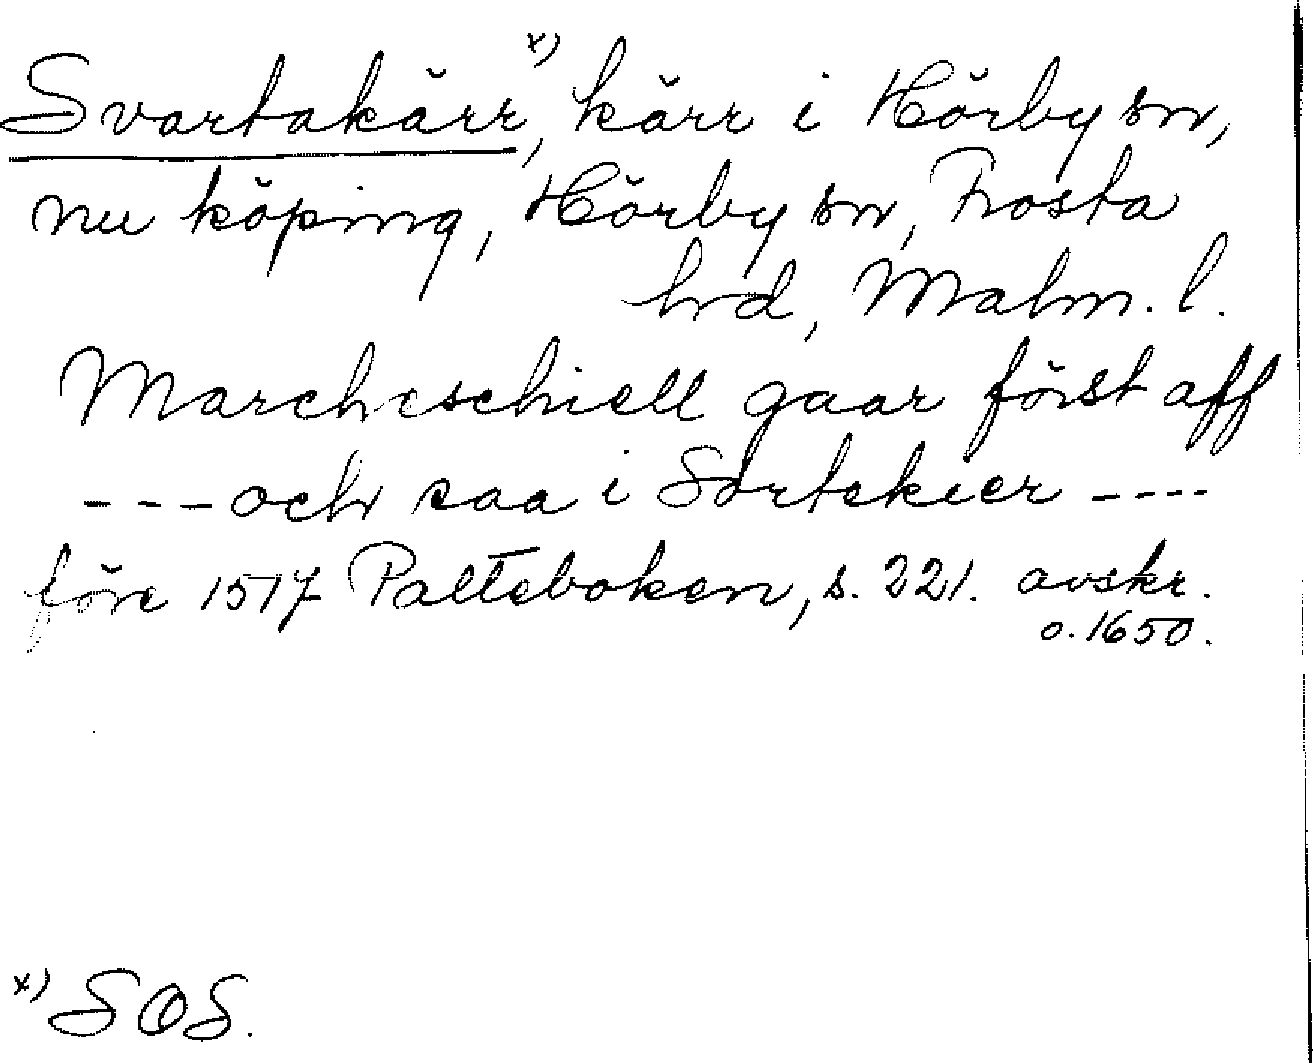 Svartakärr,x) kärr i Hörby sn,
nu köping, Hörby sn, Frosta
hrd, Malm. l.
Marcheschiell gaar först aff
---och saa i Sortekier ----
före 1517 Palteboken, s. 221. avskr.
o. 1650.
x) SOS.